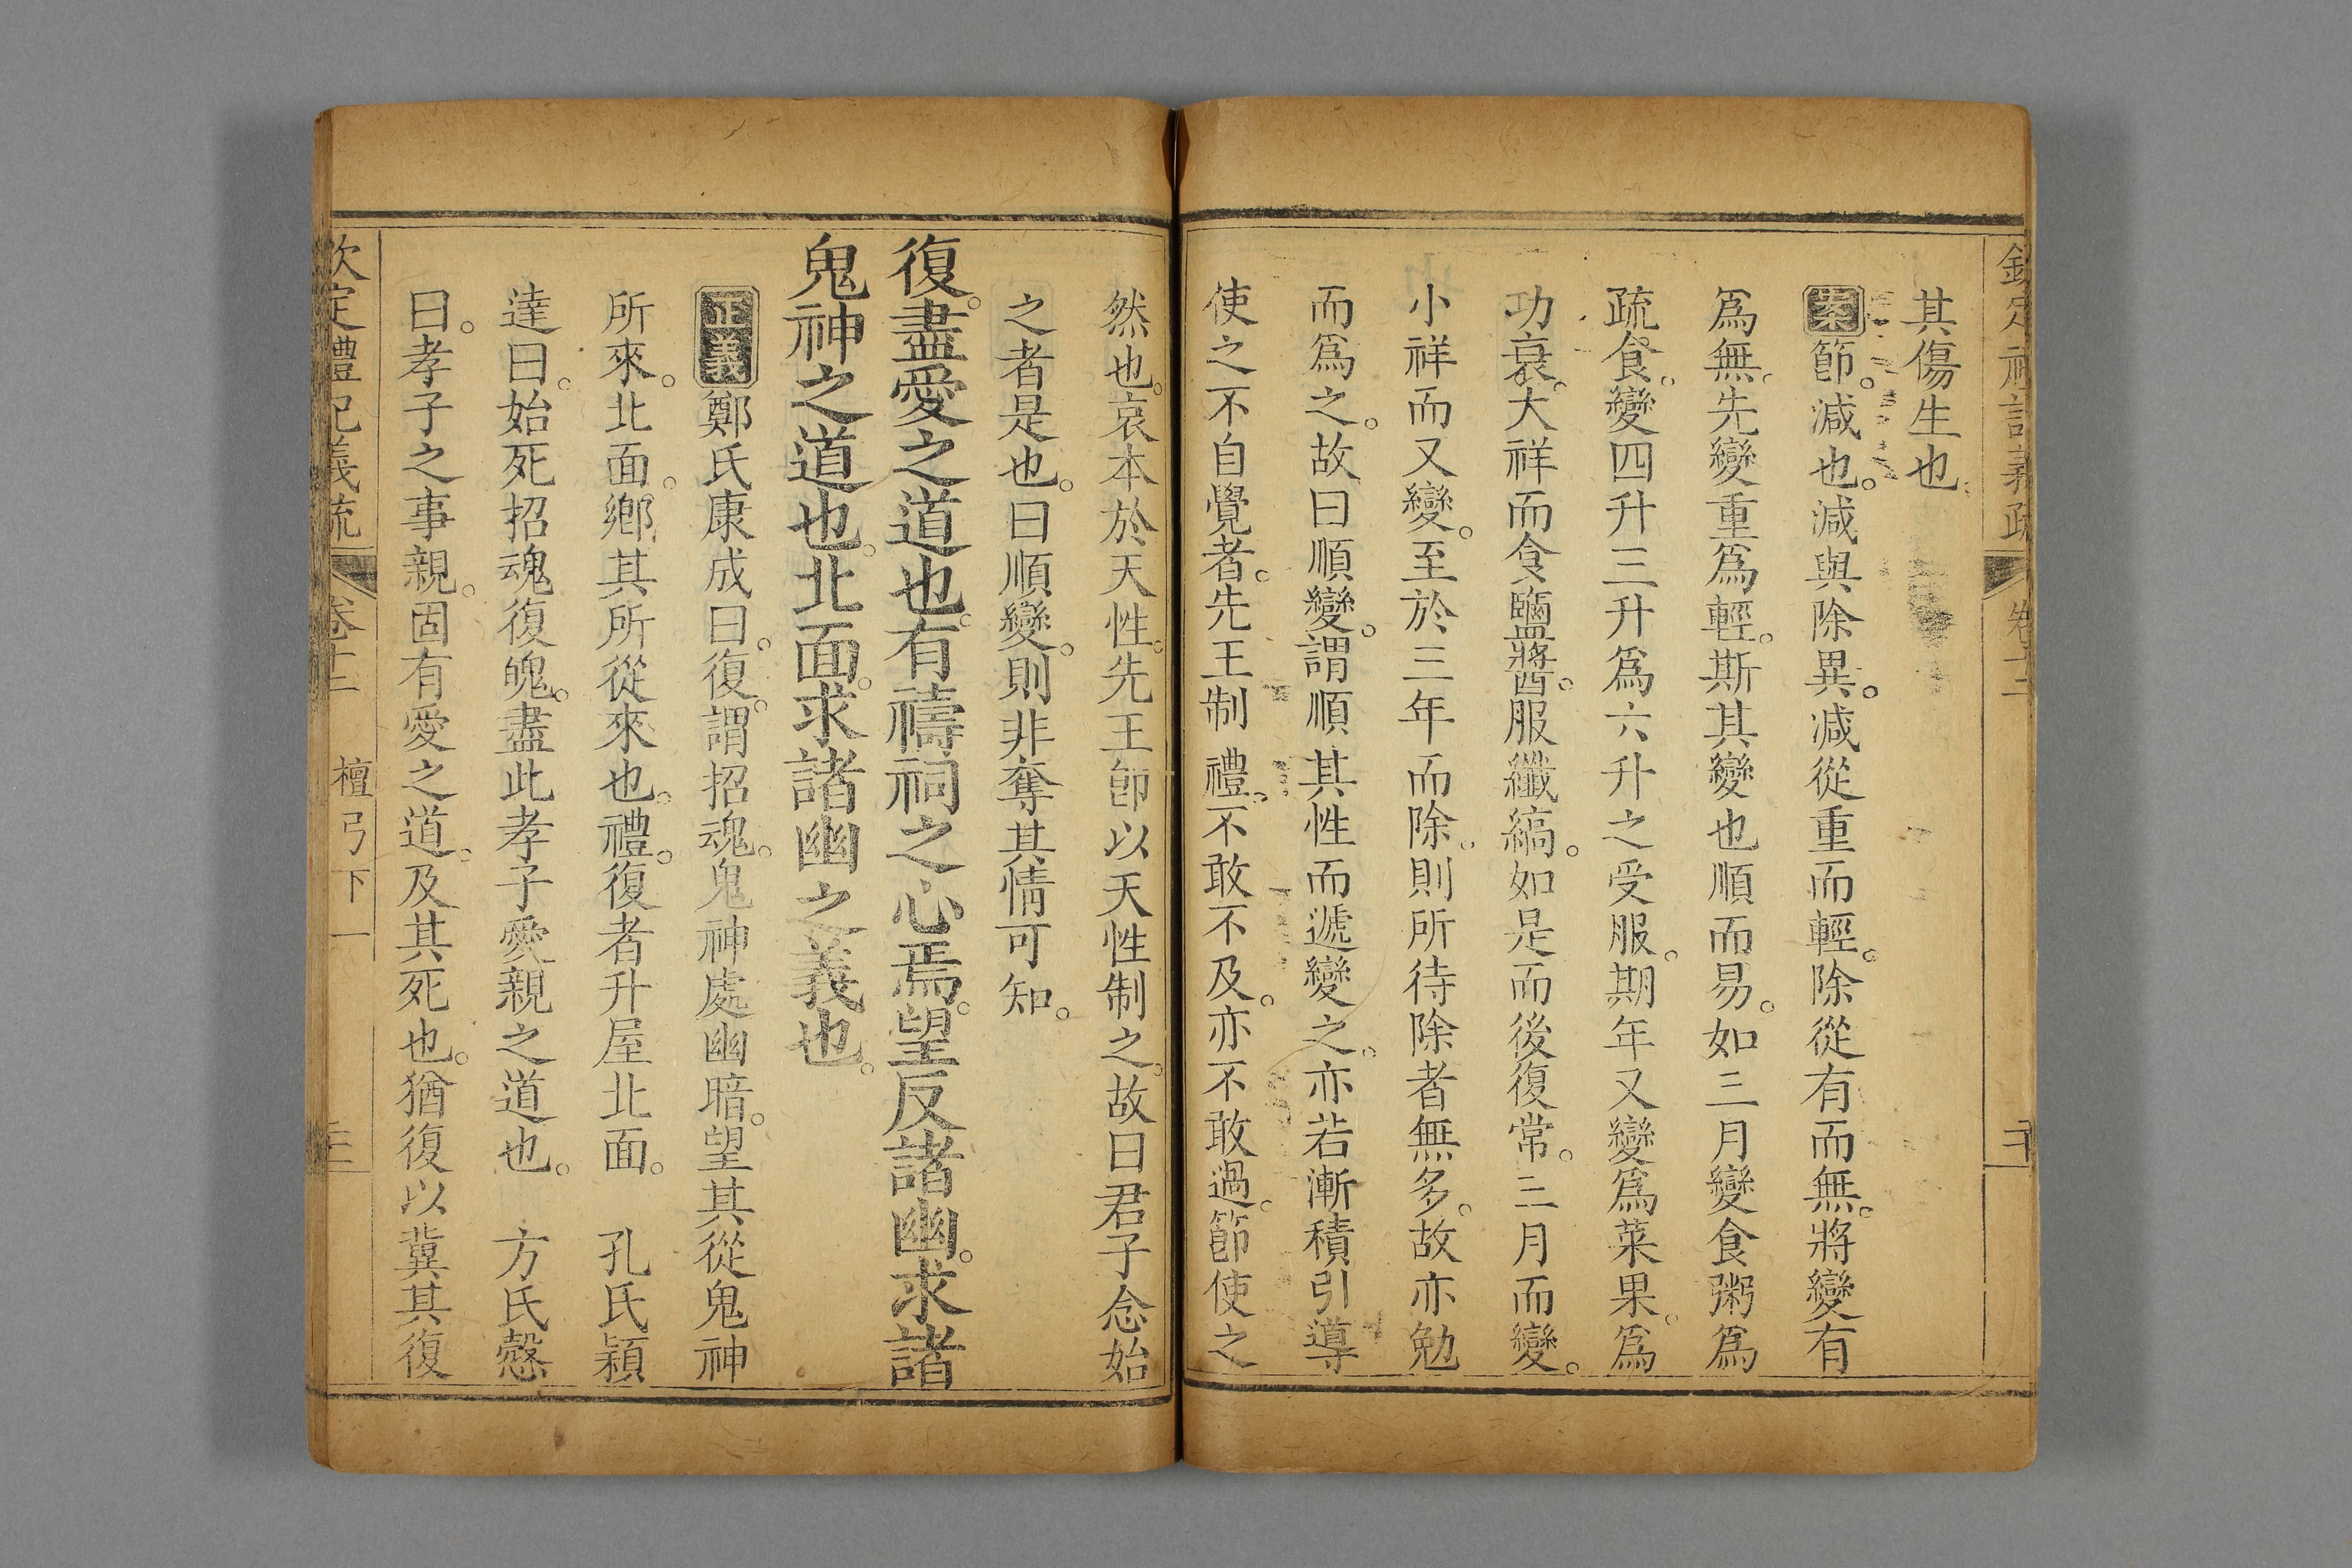 其傷生也
案節。減也。減與除異。減從重而輕。除從有而無。將變有
爲無。先變重爲輕。斯其變也順而易。如三月變食粥爲
疏食。變四升三升爲六升之受服。期年又變爲菜果。爲
功衰。大祥而食鹽醬。服纖縞。如是而後復常。三月而變。
小祥而又變。至於三年而除。則所待除者無多。故亦勉
而爲之。故曰順變。謂順其性而遞變之。亦若漸積引導
使之不自覺者。先王制禮。不敢不及。亦不敢過。節使之
然也。哀本於天性。先王卽以天性制之。故曰君子念始
之者是也。曰順變。則非奪其情可知。
復。盡愛之道也。有禱祠之心焉。望反諸幽。求諸
鬼神之道也。北面。求諸幽之義也。
正義鄭氏康成曰。復。謂招魂。鬼神處幽暗。望其從鬼神
所來。北面。鄉其所從來也。禮。復者升屋北面。 孔氏穎
達曰。始死招魂復魄。盡此孝子愛親之道也。 方氏慤
曰。孝子之事親。固有愛之道。及其死也。猶復以冀其復
欽定禮記義疏 卷十二 檀弓下一